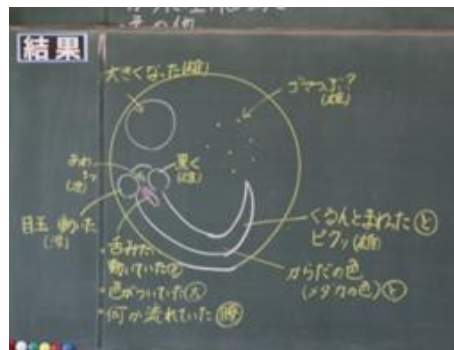 結果
大きくなった(雄)
ゴマつぶ?
(雄)
黒く
(雄)
目玉 動いた
くるんとまわった と
ピクッ(雄)
からだの色
(メダカの色) と
・舌みたい
動いていた
・色がついていた
・何か流れていた